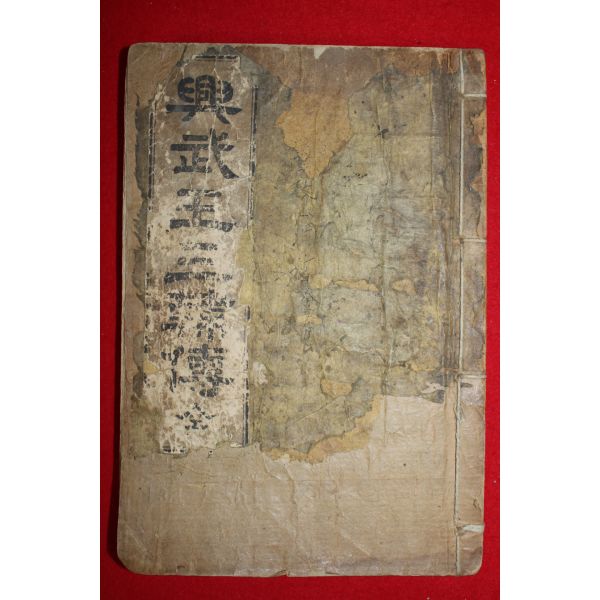 興武王三韓傳 全